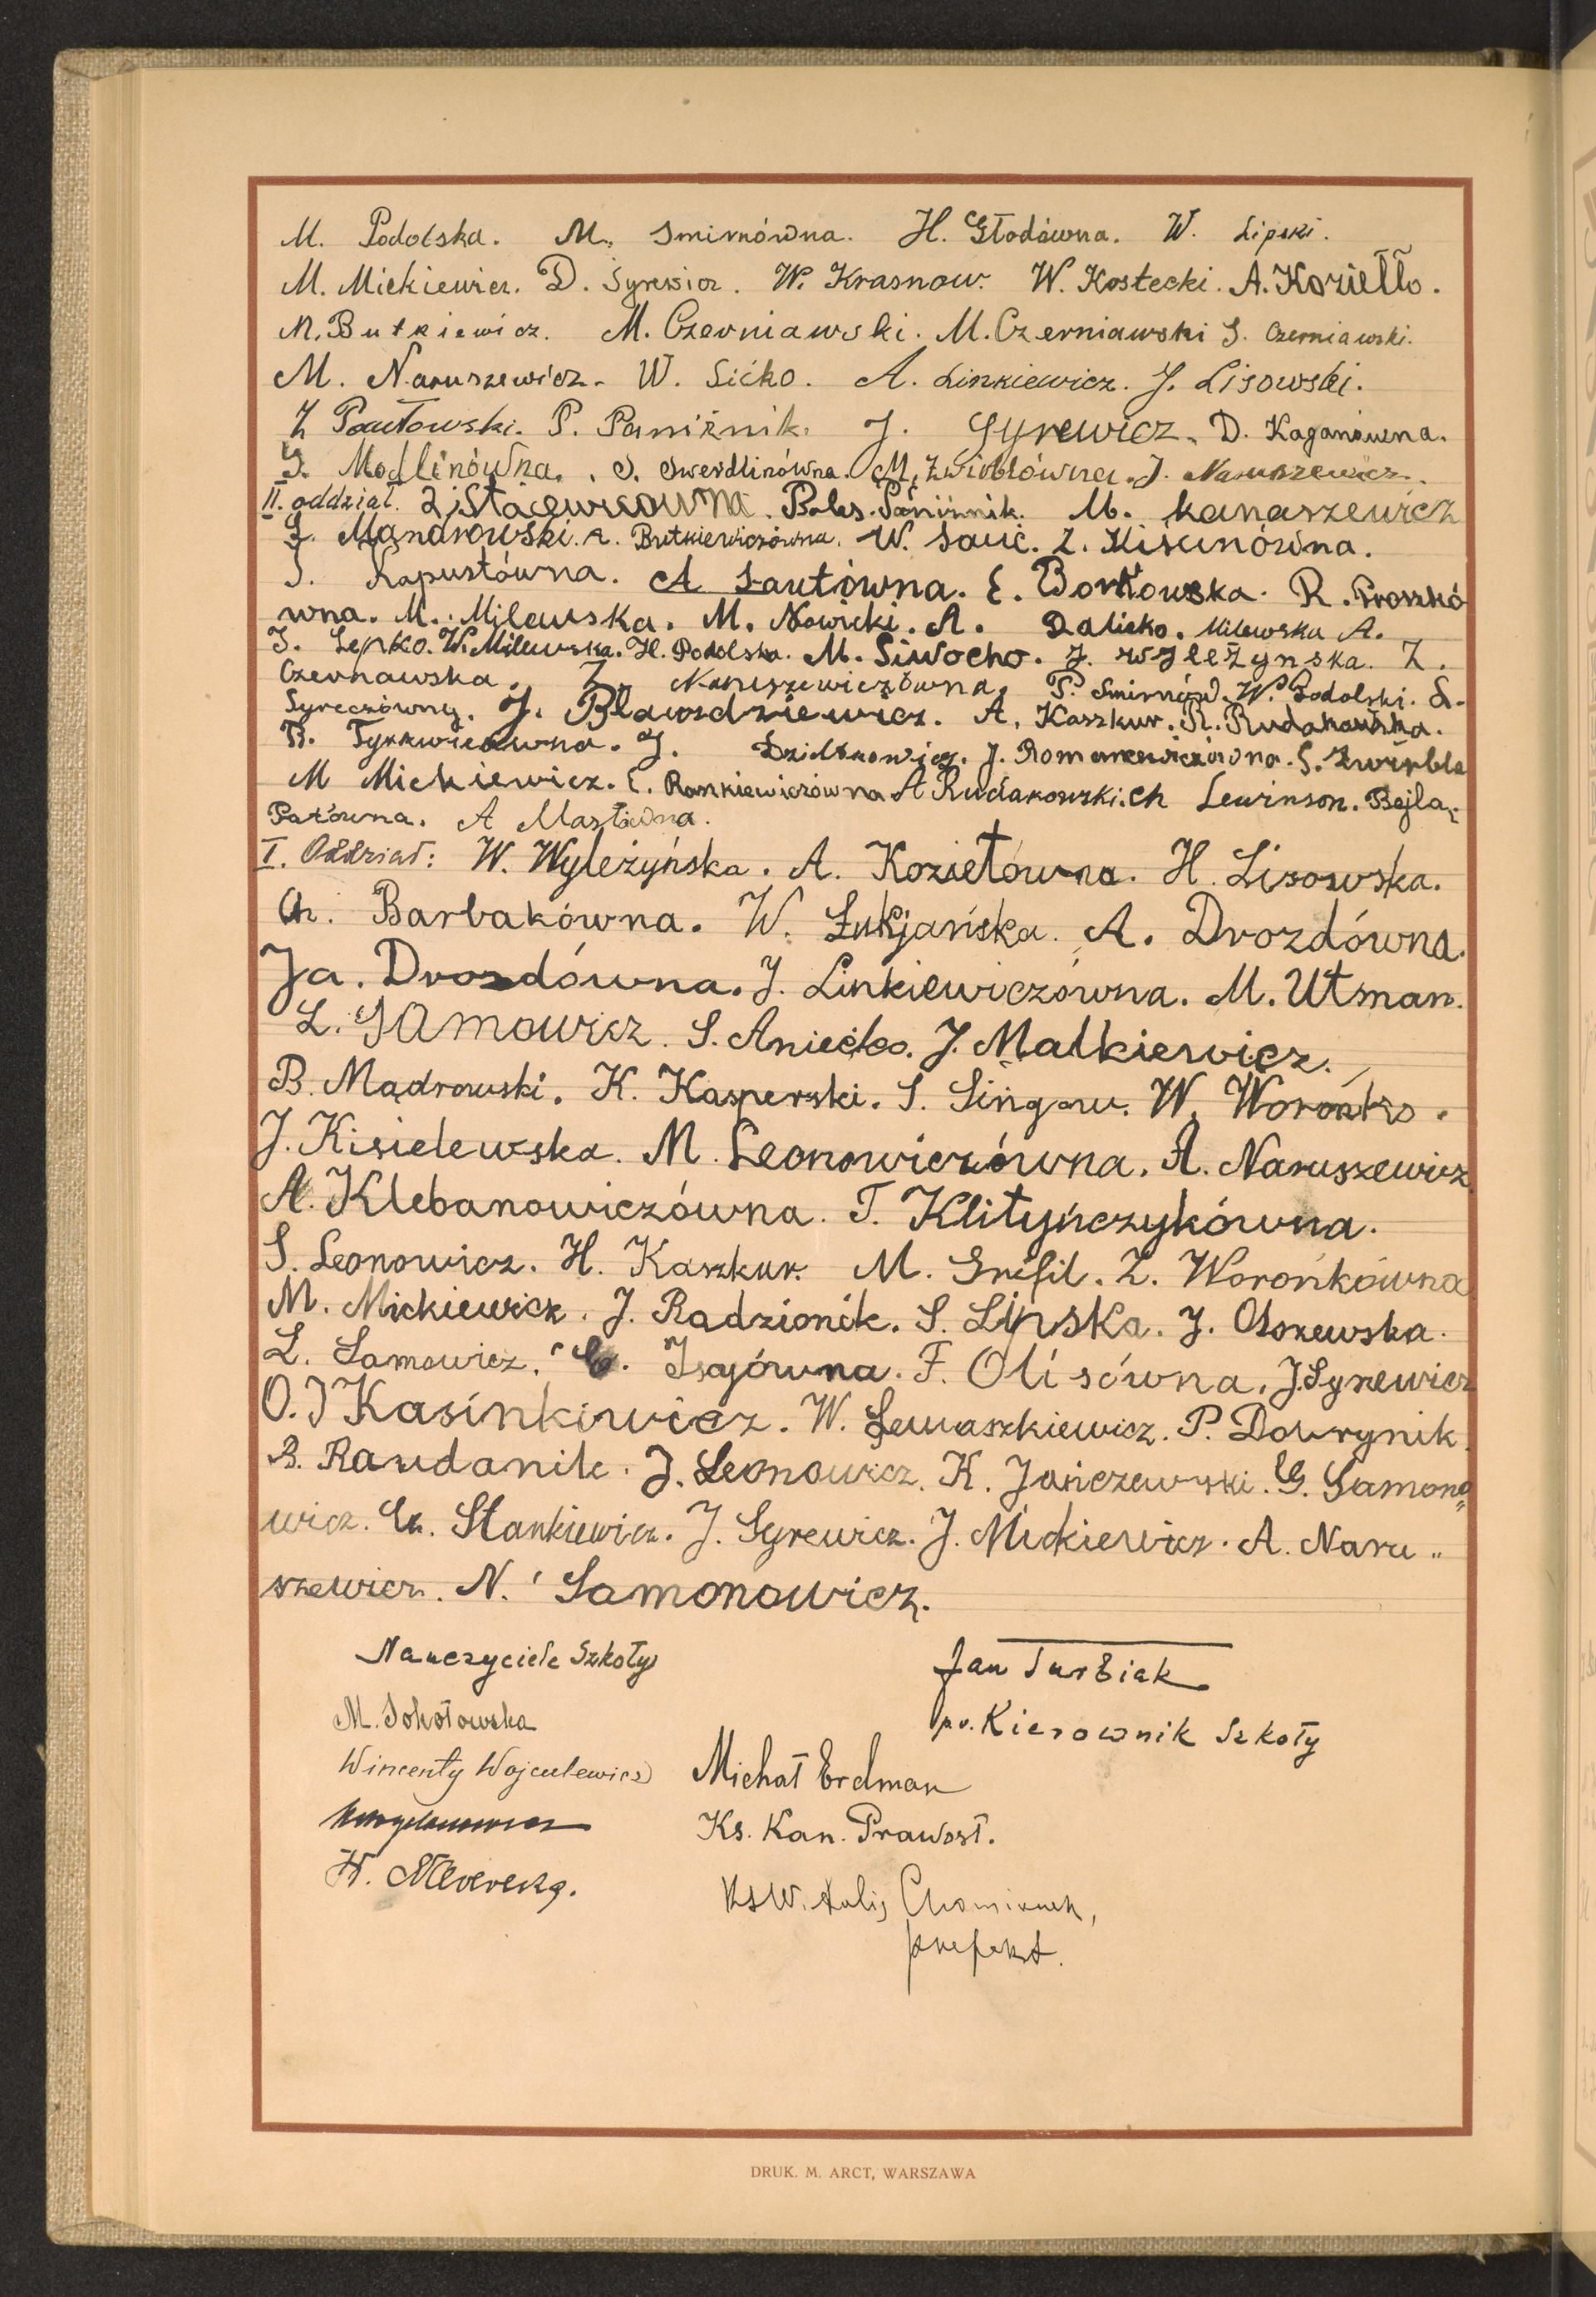 M. Podolska. M. Smirnówna. H. Głodówna. W. Lipski.
M. Mickiewicz. D. Syrewicz. W. Krasnow. W. Kostecki. A. Koziełło.
M. Butkiewicz. M. Czerniawski. M. Czerniawski S. Czerniawski.
M. Naruszewicz. W. Sićko. A. Linkiewicz. J. Lisowski.
Z Pawłowski. P. Paniźnik. J. Syrewicz. D. Kaganówna.
G. Modlinówna. S. Swerdlinówna. M. Zwiblówna. J. Naruszewicz.
II. oddział. Boles. Paniźnik. M. Kanaszewicz
Butkiewiczówna. W. Sauć. Z. Kisinówna.
S. Kapustówna. A Łautówna. E. Borkowska. R. Proszkó
wna. M. Milewska. M. Nowicki. A. Dalicko. Milewska A.
J. Lepko. W. Milewska. H. Podolska. M. Siwocho. J. Wyleżynska. Z.
Czernawska. Z. Naruszewiczówna. P. Smirnów. W. Podolski. S.
J. Bławzdziewicz. A. Kaszkur. R. Rudakowska.
J. J. Romancewiczówna. S. Zwirbla
M Mickiewicz. E. Romkiewiczówna A Rudakowski. Ch Lewinson. Bejla
Patówna. A Mastówna.
I. Oddział: W. Wyleżyńska. A. Koziełówna. H. Lisowska.
Ch. Barbakówna. W. Łukjańska. A. Drozdówna.
Ja. Drozdówna. J. Linkiewiczówna. M. Utman.
L. Samowicz. S. Aniećko. J. Malkiewicz.
B. Mądrowski. K. Kasperski. S. Singow. W. Worońko.
J. Kisielewska. M. Leonowiczówna. A. Naruszewicz
A. Klebanowiczówna. T. Klityńczykówna.
S. Leonowicz. H. Kaszkur. M. Grefil. Z. Worońkówna
M. Mickiewicz. J. Radzionik. S. Lipska. J. Oszewska.
L. Samowicz. Isajówna. F. Olisówna. J. Syrewicz
O. J Kasinkiewicz. W. Lewaszkiewicz. P. Dowrynik.
B. Raudanik. J. Leonowicz. K. Jańczewski. G. Samono„
wicz. Cz. Stankiewicz. J. Syrewicz. J. Mickiewicz. A. Naru„
szewicz. N. Samonowicz.
Nauczyciele Szkoły
Jan Turbiak
M. Sokołowska
p.o. Kierownik Szkoły
Wincenty Wojculewicz
Michał Erdman
Ks. Kan. Prawosł.
prefekt.
DRUK. M. ARCT, WARSZAWA